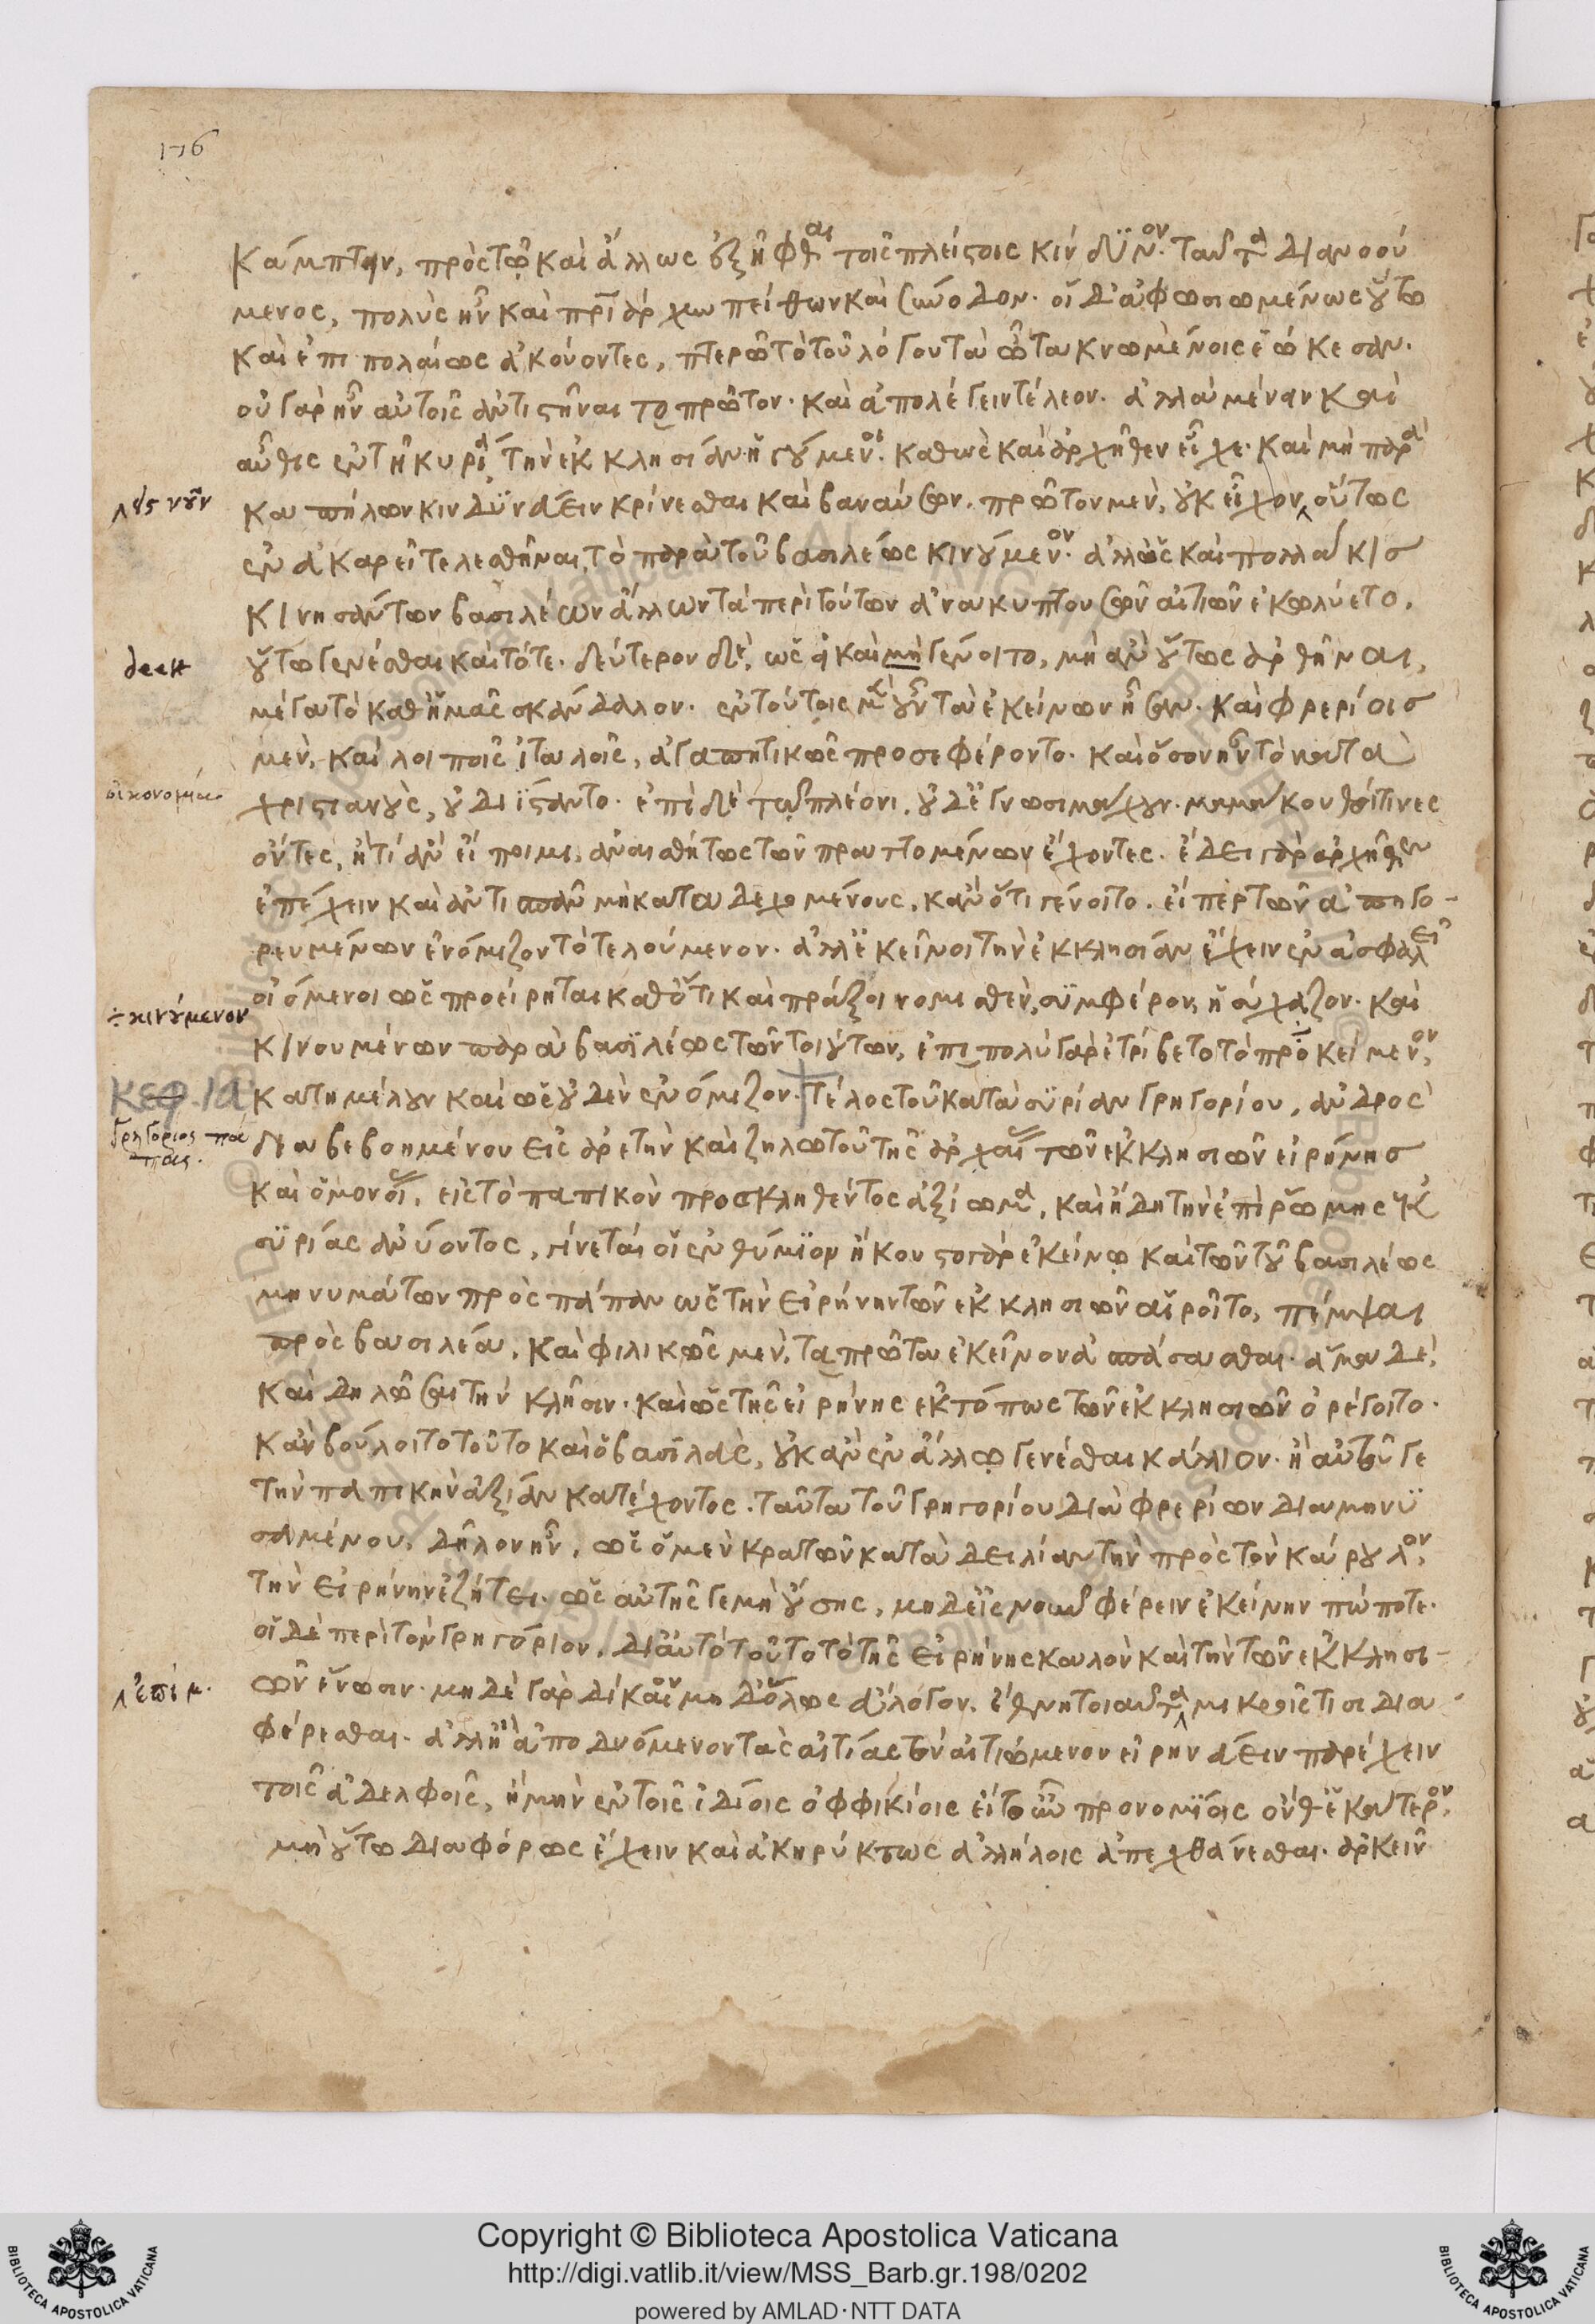 176
κάμπτειν, πρὸς τῷ καὶ ἄλλως ἐξῆφθαι τοῖς πλείστοις κίνδυνον. ταῦτα διανοού
μενος, πολὺς ἦν καὶ πατριάρχην πείθων καὶ σύνοδον. οἱ δ' ἀφωσιωμένως οὕτω
καὶ ἐπιπολαίως ἀκούοντες, πτερωτὸ τοῦ λόγου τὰ ὦτα κνωμένοις ἐῴκεσαν.
οὐ γὰρ ἦν αὐτοῖς ἀντιστῆναι τὸ πρῶτον. καὶ ἀπολέγειν τέλεον. ἀλλὰ μένειν καὶ
αὖθις ἐν τῇ κυρίᾳ, τὴν ἐκκλησίαν ἡγούμενοι. καθὼς καὶ ἀρχῆθεν εἶχε. καὶ μὴ παρὰ
καπήλων κινδυνάξειν κρίνεσθαι καὶ βαναύσων. πρῶτον μὲν, οὐκ εἶχον οὕτως
λέγς νῦν
ἐν ἀκαρεῖ τελεσθῆναι, τὸ παρὰ τοῦ βασιλέως κινούμενον. ἀλλ' ὡς καὶ πολλάκις
κινησάντων βασιλέων ἄλλων τὰ περὶ τούτων ἀνακυπτουσῶν αἰτιῶν ἐκωλύετο,
οὕτω γενέσθαι καὶ τότε. δεύτερον δὲ, ὡς εἰ καὶ μὴ γένοιτο, μὴ ἂν οὕτως ἀρθῆναι,
deest
μέγα τὸ καθ' ἡμᾶς σκάνδαλον. ἐν τούτοις μὲν οὖν τὰ ἐκείνων ἦσαν. καὶ φρερίοις
μὲν, καὶ λοιποῖς ἰταλοῖς, ἀγαπητικῶς προσεφέροντο. καὶ ὅσον ἦν τὸ κατὰ
χριστιανοὺς, οὐ διΐσταντο. ἐπὶ δὲ τῷ πλέονι, οὐδὲ γνωσιμαχουν. μὴ μακουθοίτινες
οἰκονομία
ὄντες, ἢ τί ἂν εἴποιμι, ἀναισθήτως τῶν πραττομένων ἔχοντες. ἔδει γὰρ ἀρχῆθεν
ἐπέχειν καὶ ἀντισπᾶν μὴ καταδεχομένους, κἂν ὅτι γένοιτο. εἴπερ τῶν ἀπηγο-
ρευμένων ἐνόμιζον τὸ τελούμενον. ἀλλ' ἐκεῖνοι τὴν ἐκκλησίαν ἔχειν ἐν ἀσφαλεῖ
οἰόμενοι ὡς προείρηται καθότι καὶ πράξοι νομισθὲν, συμφέρον, ἡσύχαζον. καὶ
÷ κινούμενον
κινουμένων παρὰ βασιλέως τῶν τοιούτων, ἐπιπολὺ γὰρ ἐτρίβετο τὸ προκείμενον,
κατημέλουν καὶ ὡς οὐδὲν ἐνόμιζον. τέλος τοῦ κατὰ συρίαν γρηγορίου, ἀνδρὸς
κεφ. ια
γρηγόριος πάπας.
διαβεβοημένου εἰς ἀρετὴν καὶ ζηλωτοῦ τῆς ἀρχαίας τῶν ἐκκλησιῶν εἰρήνης
καὶ ὁμονοίας, εἰς τὸ παπικὸν προσκληθέντος ἀξίωμα, καὶ ἤδη τὴν ἐπὶ ῥώμης ἐκ
συρίας ἀνύοντος, γίνεταί οἱ ἐνθύμιον ἤκουστο γὰρ ἐκείνῳ καὶ τῶν τοῦ βασιλέως
μηνυμάτων πρὸς πάπαν ὡς τὴν εἰρήνην τῶν ἐκκλησιῶν αἱροῖτο, πέμψαι
πρὸς βασιλέα, καὶ φιλικῶς μὲν, τὰ πρῶτα ἐκεῖνον ἀσπάσασθαι. ἅμα δὲ,
καὶ δηλῶσαι τὴν κλῆσιν. καὶ ὡς τῆς εἰρήνης ἐκτόπως τῶν ἐκκλησιῶν ὀρέγοιτο.
κἂν βούλοιτο τοῦτο καὶ ὁ βασιλεὺς, οὐκ ἂν ἐν ἄλλῳ γενέσθαι κάλλιον. ἢ αὐτοῦ γε
τὴν παπικὴν ἀξίαν κατέχοντος. ταῦτα τοῦ γρηγορίου διὰ φρερίων διαμηνυ
σαμένου, δῆλον ἦν, ὡς ὁ μὲν κρατῶν κατὰ δειλίαν τὴν πρὸς τὸν κάρουλον,
τὴν εἰρήνην ἐζήτει. ὡς αὐτῆς γε μὴ οὔσης, μηδ' εἰς νοῦν φέρειν ἐκείνην πώποτε.
οἱ δὲ περὶ τὸν γρηγόριον, δι' αὐτὸ τοῦτο τὸ τῆς εἰρήνης καλὸν καὶ τὴν τῶν ἐκκλησι-
ῶν ἕνωσιν. μηδὲ γὰρ δίκαιον μηδ' ὅλως εὔλογον, ἔθνη τοιαῦτα μικροῖς τισι δια
λ ἐπί μ.
φέρεσθαι. ἀλλ' ἢ ἀποδυόμενον τὰς αἰτίας τὸν αἰτιώμενον εἰρηνάξειν παρέχειν
τοῖς ἀδελφοῖς, ἢ μὴν ἐν τοῖς ἰδίοις ὀφφικίοις εἴτουν προνομίοις ὄνθ' ἑκάτερον,
μὴ οὕτω διαφόρως ἔχειν καὶ ἀκηρύκτως ἀλλήλοις ἀπεχθάνεσθαι. ἀρκεῖν
Copyright © Biblioteca Apostolica Vaticana
http://digi.vatlib.it/view/MSS_Barb.gr.198/0202
powered by AMLAD·NTT DATA
BIBLIOTECA APOSTOLICA VATICANA
BIBLIOTECA APOSTOLICA VATICANA